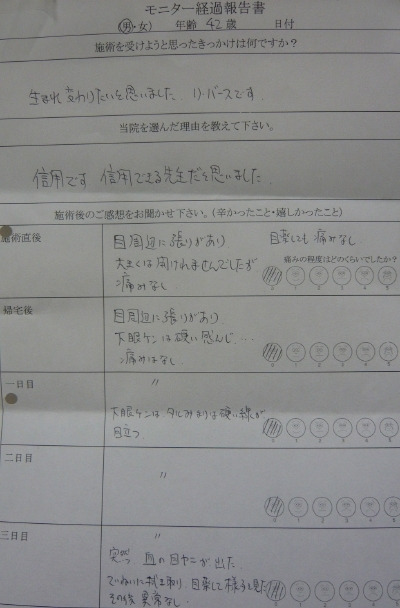 モニター経過報告書
(男・女) 年齢 42歳 日付
施術を受けようと思ったきっかけは何ですか？
生まれ変わりたいと思いました。リ・バースです。
当院を選んだ理由を教えて下さい。
信用です 信用できる先生だと思いました。
施術後のご感想をお聞かせ下さい。（辛かったこと・嬉しかったこと）
施術直後
目周辺に張りがあり
大きくは開けれませんでしたが
痛みなし
目薬しても痛みなし
痛みの程度はどのくらいでしたか？
0 1 2 3 4 5
帰宅後
目周辺に張りがあり
下眼ケンは硬い感じ…
痛みはなし
0 1 2 3 4 5
一日目
〃
下眼ケンは、タルみよりは硬い線が
目立つ
0 1 2 3 4 5
二日目
〃
0 1 2 3 4 5
三日目
突然 血の目ヤニが出た
ていねいに拭き取り、目薬して様子を見た
その後異常なし
0 1 2 3 4 5